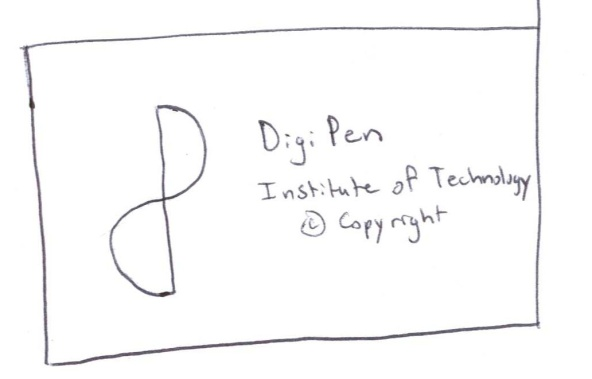 DigiPen
Institute of Technology
© Copyright